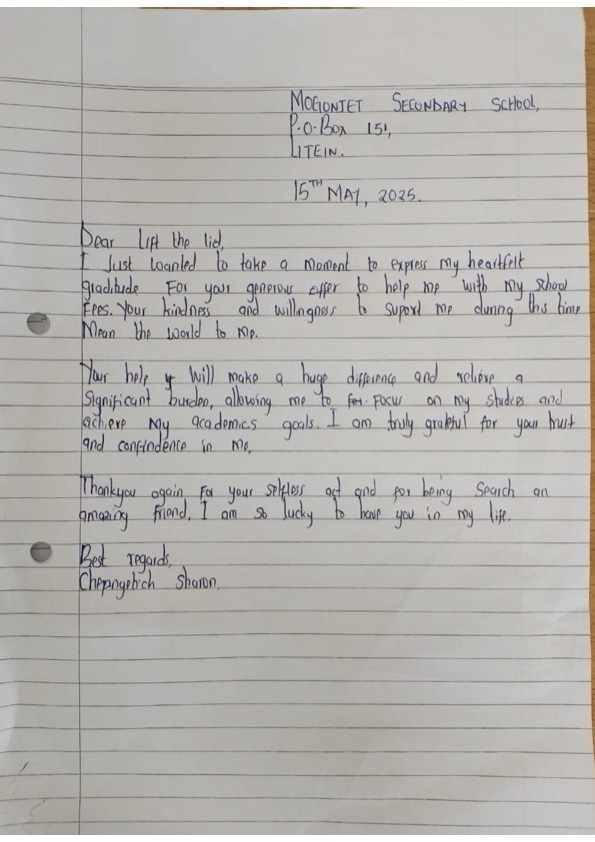 MOGONJET SECONDARY SCHOOL,
P.O.Box 151,
LITEIN.
15TH MAY, 2025.
Dear Lift the lid,
I Just wanted to take a moment to express my heartfelt
graditude For your generous offer to help me with my school
Fees. Your kindness and willingness to suport me durning this time
Mean the world to me.
Your help will make a huge difference and relieve a
significant burden, allowing me to for focus on my studies and
achieve My academics goals. I am truly grateful for your trust
and confindence in me.
Thankyou again For your selfless act and for being Search an
amazing friend. I am so lucky to have you in my life.
Best regards,
Chepngetich Sharon.